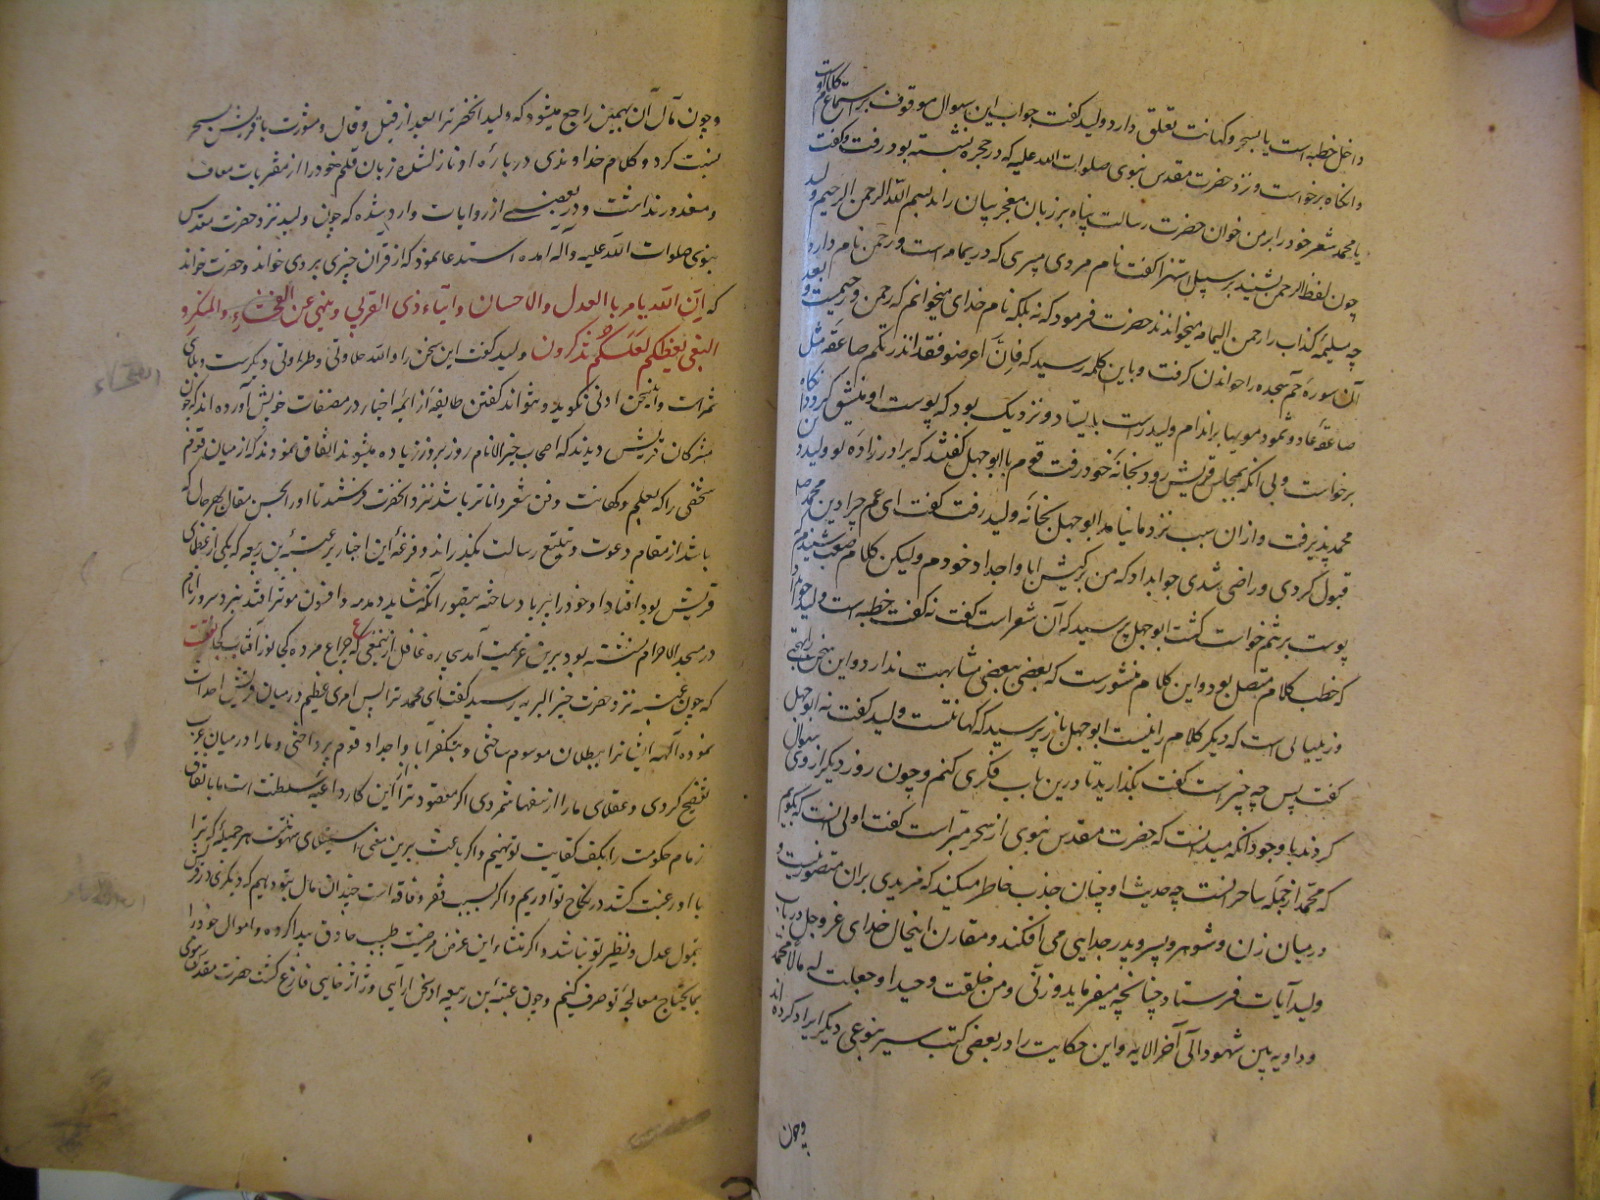 داخل خطبه است یا بسحر و کهانت تعلق دارد ولید کفت جواب این سوال موقوف بر استماع کلام اوست
وانکاه برخواست و نزد حضرت مقدس نبوی صلوات الله علیه که در حجره نشسته بود رفت و کفت
یا محمد شعر خود را بر من خوان حضرت رسالت پناه بر زبان معجز بیان راند بسم الله الرحمن الرحیم ولید
چون لفظ الرحمن بشنید بر سبیل استهزا کفت نام مردی میبری که در یمامه است و رحمن نام دارد
چه مسیلمه کذاب را رحمن الیمامه میخواندند حضرت فرمود که نه بلکه نام خدای میخوانم که رحمن و رحیمست و بعد
آن سوره حم سجده را خواندن کرفت و باین کلمه رسید که فان اعرضوا فقد انذرتکم صاعقة مثل
صاعقة عاد و ثمود مویها بر اندام ولید راست بایستاد و نزدیک بود که پوست او منشق کردد انکاه
برخواست و بی انکه بمجلس قریش رود بخانه خود رفت قوم با ابو جهل کفتند که برادر زاده تو ولید دین
محمد پذیرفت و از ان سبب نزد ما نیامد ابو جهل بخانه ولید رفت کفت ای عم چرا دین محمد
قبول کردی و راضی شدی جواب داد که من بر کیش ابا و اجداد خودم ولیکن کلام صعب شنیدم که
پوست بر تنم خواست کفت ابو جهل پرسید که آن شعر است کفت نه کفت خطبه است ولید جواب داد
که خطب کلام متصل بود و این کلام منثورست که بعضی ببعضی مشابهت ندارد و این سخن را بهجتی
و زیبیائی است که دیکر کلام را نیست ابو جهل باز پرسید که کهانتست ولید کفت نه ابو جهل
کفت پس چه چیز است کفت بکذارید تا درین باب فکری کنم و چون روز دیکر از وی سوال
کردند با وجود انکه میدانست که حضرت مقدس نبوی از سحر مبراست کفت اولی انست که بکویم
که محمد از جمله ساحرانست چه حدیث او چنان جذب خاطر میکند که مزیدی بران متصور نیست و
در میان زن و شوهر و پسر و پدر جدایی می افکند و مقارن اینحال خدای عز و جل در باب
ولید آیات فرستاد چنانچه میفرماید ذرنی و من خلقت وحیدا و جعلت له مالا ممدودا
و داویه بین شهودا الی آخر الایه و این حکایت را در بعضی کتب سیر بنوعی دیکر ایراد کرده اند
وچون
و چون مآل آن بهمین راجع میشود که ولید انحضرت را بعد از قیل و قال و مشورت با قریش بسحر
نسبت کرد و کلام خداوندی در باره او نازل شده زبان قلم خود را از مقربات معاف
و معذور نداشت و در بعضی از روایات وارد شده که چون ولید نزد حضرت مقدس
نبوی صلوات الله علیه و آله امده استدعا نمود که از قران چیزی بر وی خواند و حضرت خواند
که ان الله یامر بالعدل و الاحسان و ایتاء ذی القربی و ینهی عن الفحشاء و المنکر و
البغی یعظکم لعلکم تذکرون ولید کفت این سخن را والله حلاوتی و طراوتی دیکرست و
ثمر است و این سخن ادنی نکوید و نتواند کفتن طایفه از ائمه اخبار در مصنفات خویش آورده اند که چون
مشرکان قریش دیدند که اصحاب خیر الانام روز بروز زیاده میشوند اتفاق نمودند که از میان قوم
شخصی را که بعلم و کهانت و فن شعر داناتر باشد نزد انحضرت فرستند تا او را بحسن مقال بهر حال که
باشد از مقام دعوت و تبلیغ رسالت بکذراند و قرعه این اختیار بر عتبه بن ربیعه که یکی از عظمای
قریش بود افتاد او خود را بر باد ساخته بتصور آنکه شاید دمدمه و افسون موثر افتد نزد سرور انام
در مسجد الاحرام نشسته بود برین عزیمت آمد بیچاره غافل ازینمعنی که ع چراغ مرده کجا نور آفتاب کجا
که چون عتبه نزد حضرت خیر البریه رسید کفت ای محمد ترا بس امری عظیم در میان قریش احداث
نموده آلهه ایشانرا ببطلان موسوم ساختی و بتکفر آبا و اجداد قوم پرداختی و ما را در میان عرب
تفضیح کردی و عقلای ما را از سفها شمردی اکر مقصود ترا از این کار داعیه سلطنت است ما باتفاق
زمام حکومت را بکف کفایت تو نهیم و اکر باعث برین معنی استیفای شهوتست هر جمیله که ترا
با او رغبت کشد در نکاح تو آوریم و اکر بسبب فقر و فاقه است چندان مال بتو دهیم که دیکری در قریش
بتمول عدل و نظیر تو نباشد و اکر منشاء این عرض مرضیست طبیب حاذق پیدا کرده و اموال خود را
بمایحتاج معالجه تو صرف کنیم و چون عتبه بن ربیعه از سخن ارایی و ژاژ خایی فارغ کشت حضرت مقدس نبوی